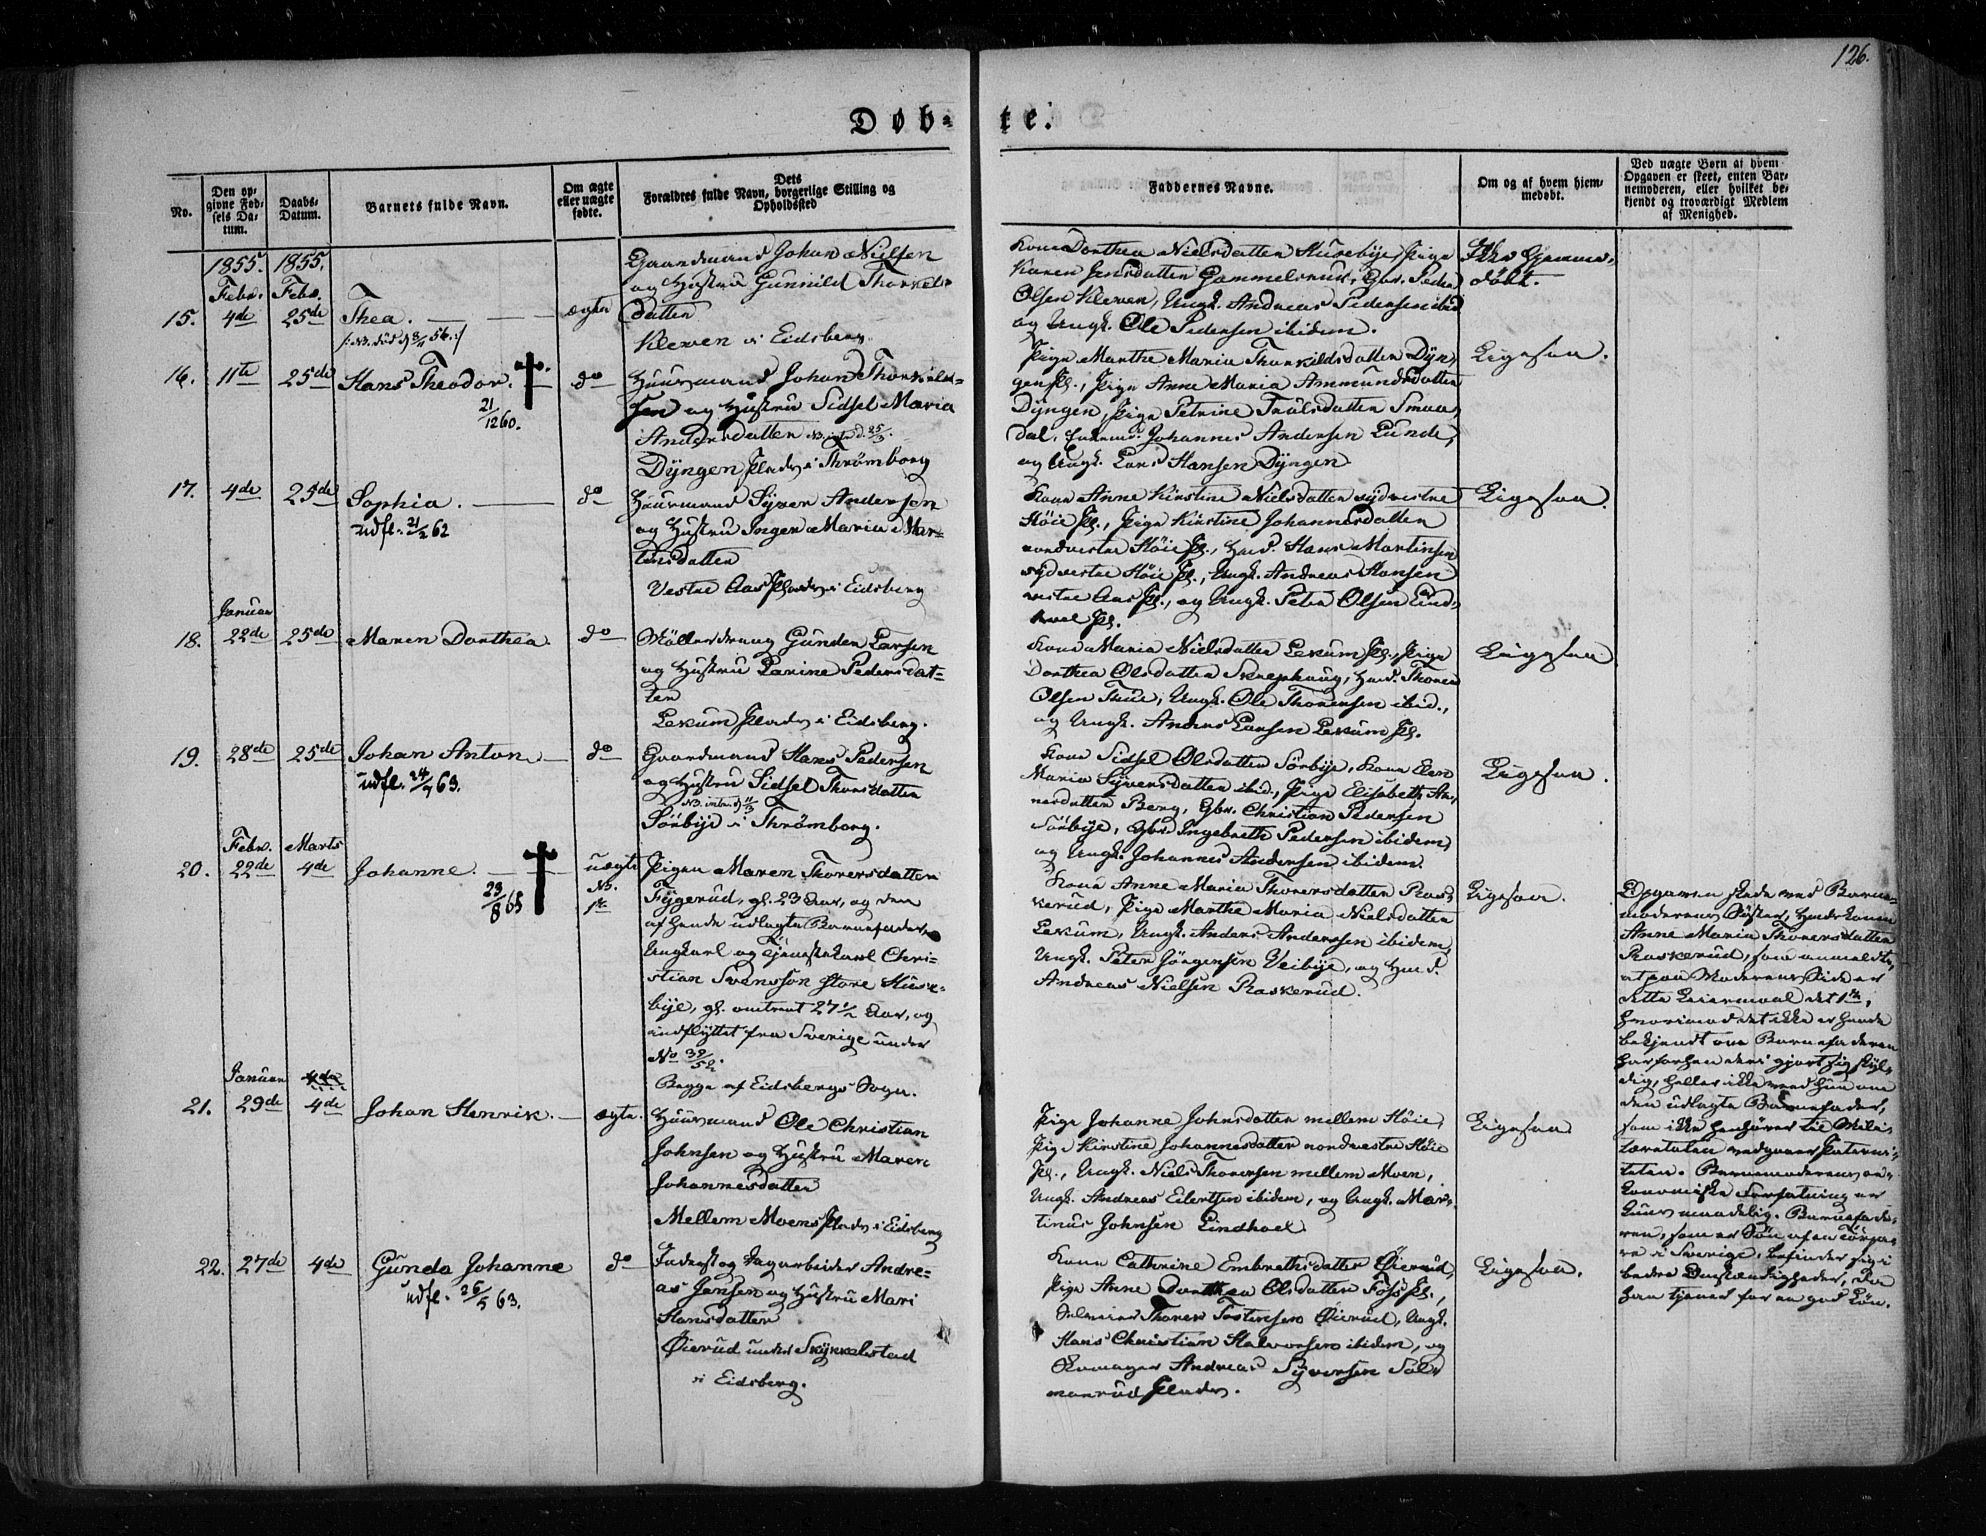 126.
Døb- te.
No.
Den op-
givne Fød-
sels Da-
tum.
Daabs-
Datum.
Barnets fulde Navn.
Om ægte
eller uægte
fødte.
Dets
Forældres fulde Navn, borgerlige Stilling og
Opholdssted
Faddernes Navne.
Om og af hvem hjem-
medøbt.
Ved uægte Børn af hvem
Opgaven er skeet, enten Bar-
nemoderen, eller hvilket be-
kjendt og troværdigt Medlem
af Menighed.
1855. 1855.
Febr. Febr.
15. 4de 25de Thea. ægte
Gaardmand Johan Nielsen
og Hustru Gunnild Thorkels-
datter
Kleven i Eidsberg.
Kone Dorthea Nielsdatter Husebye, Pige
Karen Jensdatter Gammelsrud, Gbr. Peder
Olsen Kleven, Ungk. Andreas Pedersen ibid
og Ungk. Ole Pedersen ibidem.
Ikke Hjemme-
døbt.
16. 11te 25de Hans Theodor. do
21/12 60.
Huusmand Johan Thorkild-
sen og Hustru Sidsel Maria
Andersdatter
Dÿngen Plads i Thrømborg
Pige Marthe Maria Thorkildsdatter Dÿn-
gen Pl., Pige Anne Maria Ammundsdatter
Dÿngen, Pige Petrine Trulsdatter Smaa-
dal, Johannes Andersen Lunde,
og Ungk. Lars Hansen Dÿngen
Ligesaa.
17. 4de 25de Sophia. do
udfl. 21/2 62
Huusmand Sÿver Andersen
og Hustru Inger Maria Mar-
tinsdatter
Vestre Aas Plads i Eidsberg
Kone Anne Kirstine Nielsdatter sydvestre
Høie Pl., Pige Kirstine Johannesdatter
nordvestre Høie Pl., Hmd. Hans Martinsen
sÿdvestre Høie Pl., Ungk. Andreas Hansen
vestre Aas Pl., og Ungk. Peter Olsen Lind-
hoel Pl.
Ligesaa.
Januar
18. 22de 25de Maren Dorthea do
Møllerdreng Gunder Larsen
og Hustru Larine Pedersdat-
ter
Lekum Plads i Eidsberg.
Kone Maria Nielsdatter Lekum Pl., Pige
Dorthea Olsdatter Skrephaug, Hmd. Thorer
Olsen Tune, Ungk. Ole Thorersen ibid.,
og Ungk. Anders Larsen Lekum Pl.
Ligesaa
19. 28de 25de Johan Anton do
udfl. 24/7 63.
Gaardmand Hans Pedersen
og Hustru Sidsel Thorsdatter
Sörbÿe i Thrømborg.
Kone Sidsel Olsdatter Sörbÿe, Kone Elen
Maria Sÿversdatter ibid., Pige Elisabeth
Berg, Gbr. Christian Pedersen
Sörbÿe, Gbr. Ingebreth Pedersen ibidem,
og Ungk. Johannes Andersen ibidem.
Ligesaa.
Febr. Marts
20. 22de 4de Johanne. uægte
No.
1te
23/8 65
Pigen Maren Thorersdatter
Fÿgerud, gl. 23 Aar, og den
af hende udlagte Barnefader,
Ungkarl og Tjenestekarl Chri-
stian Svensson store Huse-
bÿe, gl. omtrent 27 1/2 Aar, og
indflÿttet fra Sverige under
No 39/52.
Begge af Eidsbergs Sogn.
Kone Anne Maria Thorersdatter Ras-
kerud, Pige Marthe Maria Nielsdatter
Lekum, Ungk. Anders Anderssen ibidem,
Ungk. Peter Jörgensen Veibÿe, og Hmd.
Andreas Nielsen Raskerud.
Ligesaa.
Opgaven skede ved Barne-
moderens Söster, Huuskone
Anne Maria Thorersdatter
Raskerud, som anmeldte,
at paa Moderens Side er
dette Leiermaal det 1ste,
hvorimod det ikke er hende
bekjendt om Barnefaderen
har forhen deri gjort sig skÿl-
dig, heller ikke veed hun om
den udlagte Barnefader,
som ikke henhører til Mili-
tæretaten vedgaaer Paterni-
teten. Barnemoderens oe-
konomiske Forfatning er
kuns maadelig. Barnefade-
ren, som er Sön af en
i Sverige, befinder sig i
bedre Omstændigheder, da
han tjener for en god Lön.
Januar
21. 29de 4de Johan Henrik. ægte.
Huusmand Ole Christian
Johnsen og Hustru Maren
Johannesdatter
Mellem Moens Plads i Eidsberg
Pige Johanne Johnsdatter mellem Høie,
Pige Kirstine Johannesdatter nordvestre Høie
Pl., Ungk. Niels Thorersen mellem Moen,
Ungk. Andreas Eilertsen ibidem, og Ungk. Mar-
tinus Johnsen Lindhoel
Ligesaa
22. 27de 4de Gunda Johanne do
udfl. 26/5 63.
Inderst og Dagarbeider Andre-
as Jensen og Hustru Mari
Hansdatter
Øierud under Skÿkkelstad
i Eidsberg.
Kone Cathrine Embrethsdatter Øierud,
Pige Anne Dorthea Olsdatter Fos Pl.,
Thorer Tostensen Øierud, Ungk.
Hans Christian Halvorsen ibidem, og
Skomager Andreas Sÿversen Sal-
monrud Plads.
Ligesaa.